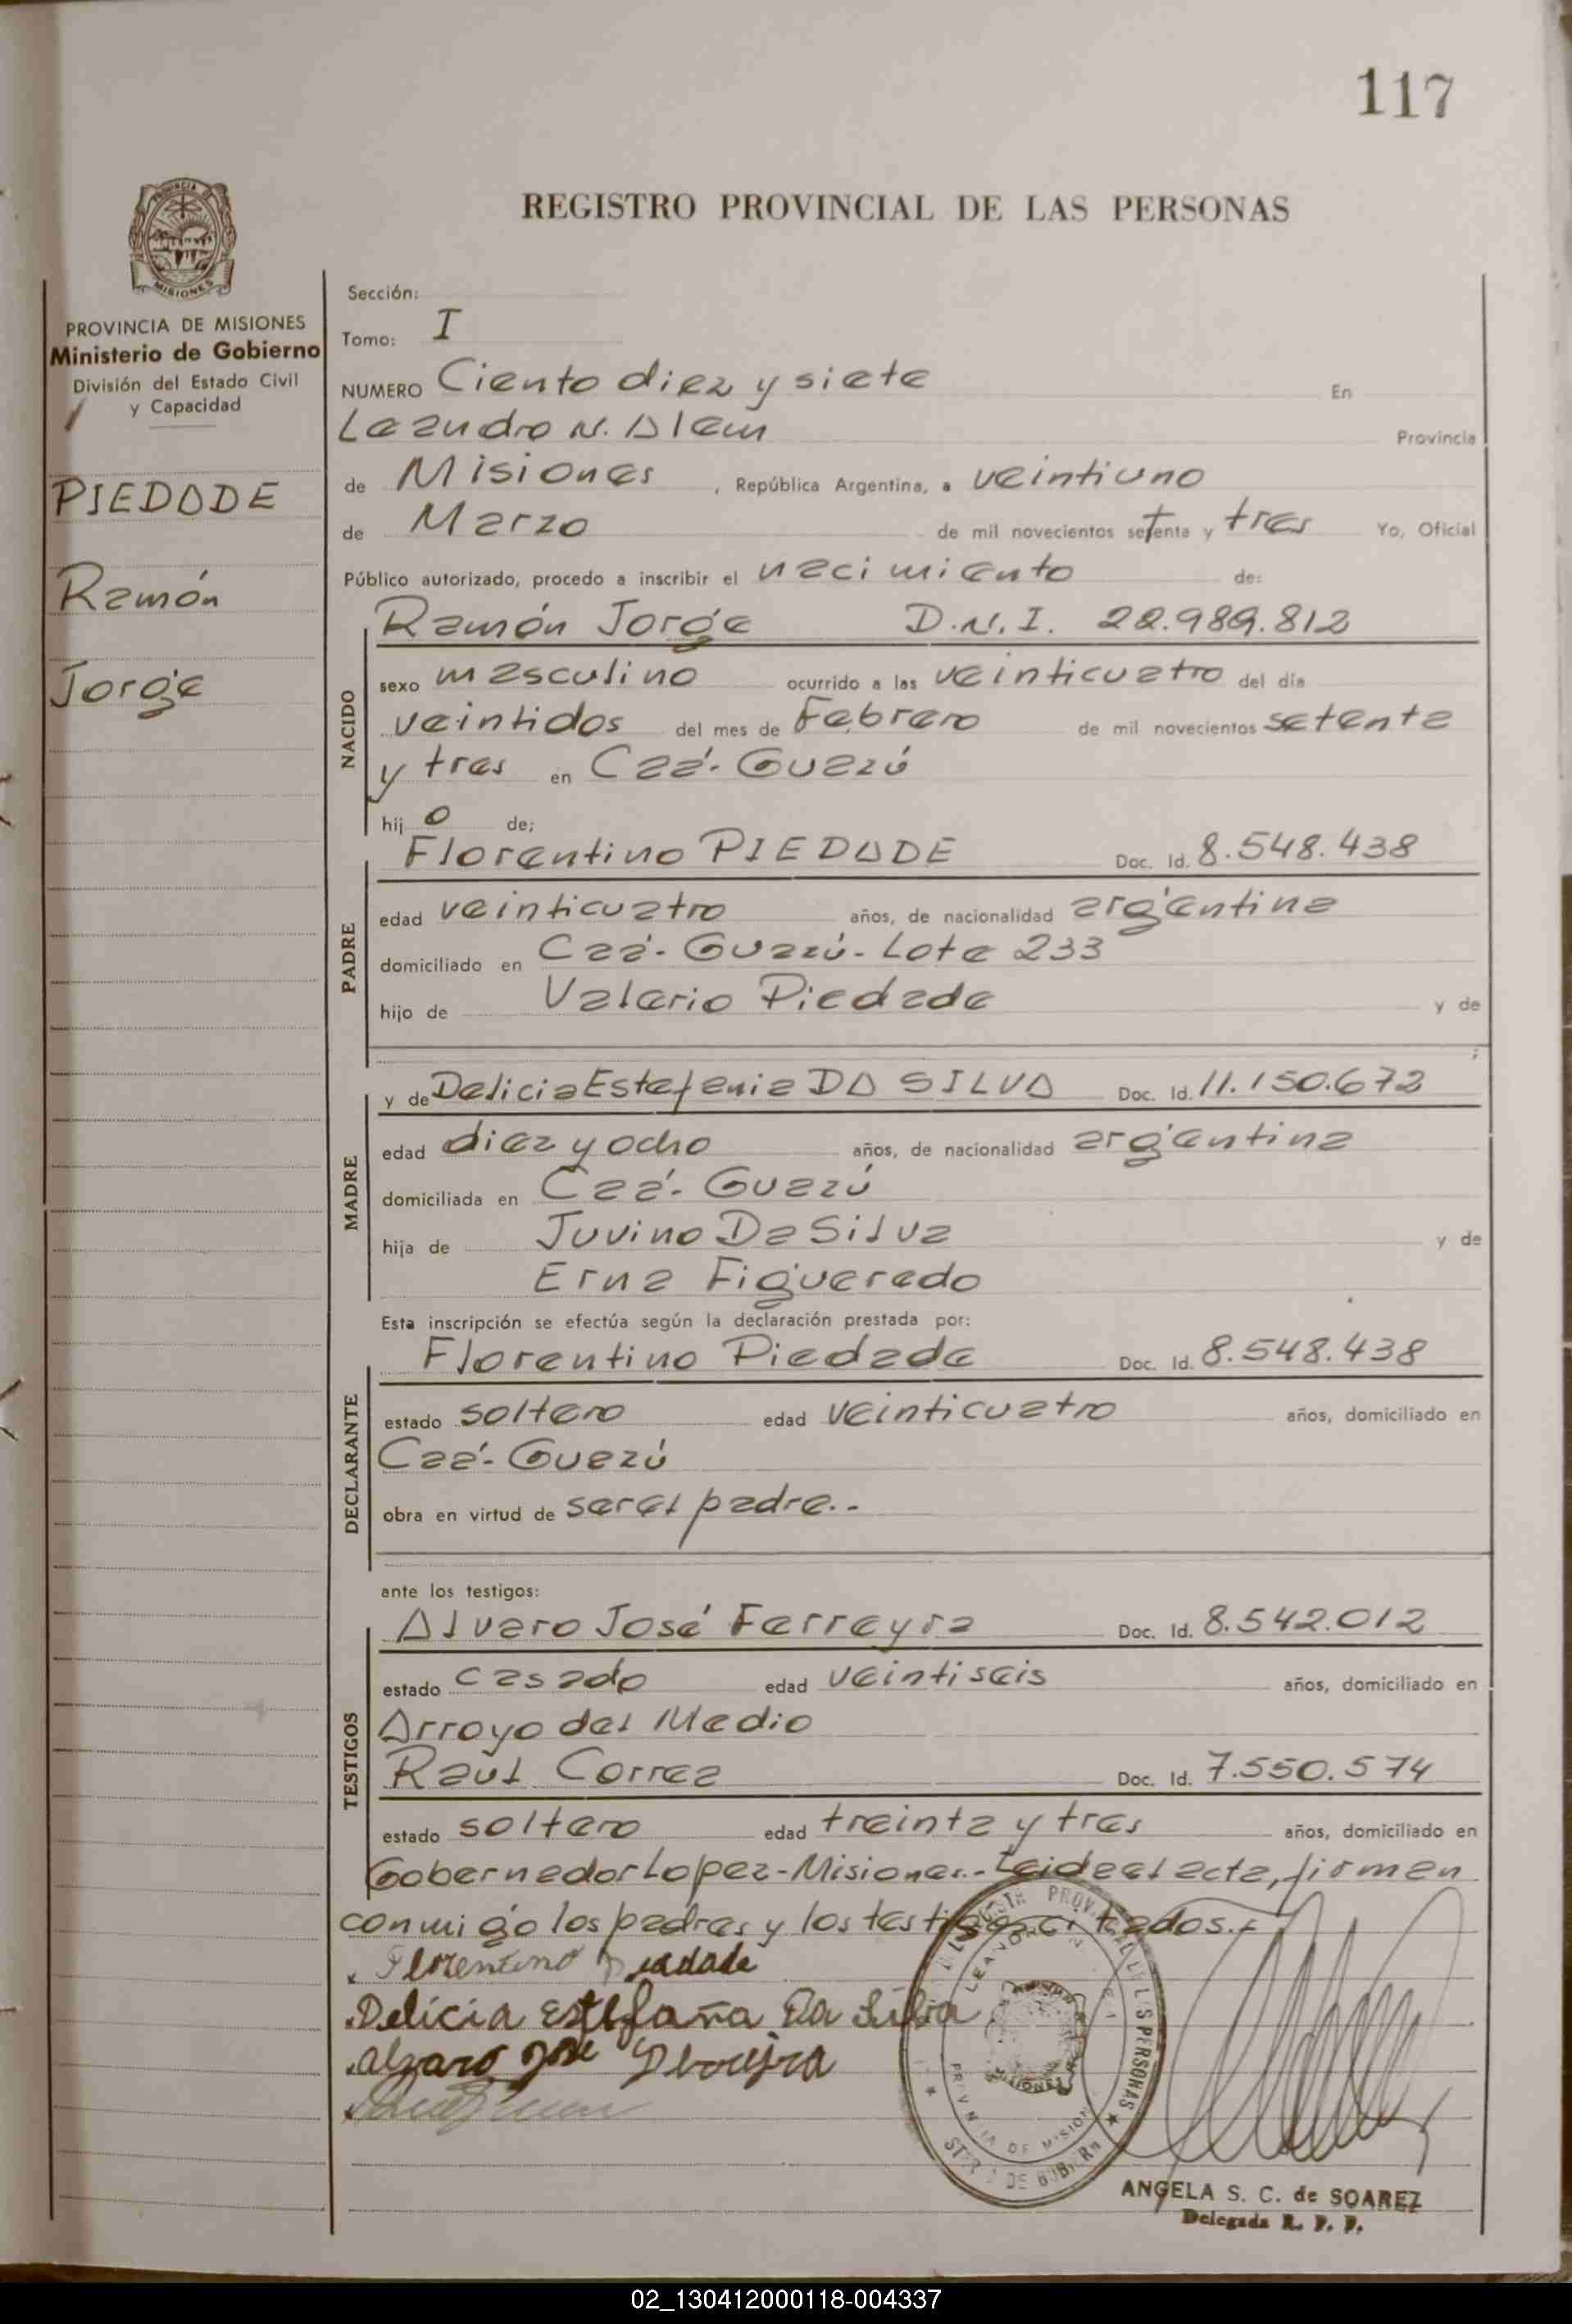 117
REGISTRO PROVINCIAL DE LAS PERSONAS
MISIONES
PROVINCIA DE MISIONES
Ministerio de Gobierno
División del Estado Civil
y Capacidad
PIEDADE
Ramón
Jorge
Sección:
Tomo: I
NUMERO Ciento diez y siete En
Leandro N. Alem Provincia
de Misiones, República Argentina, a veintiuno
de Marzo de mil novecientos setenta y tres Yo, Oficial
Público autorizado, procedo a inscribir el nacimiento de:
Ramón Jorge D.N.I. 22.989.812
NACIDO
sexo masculino ocurrido a las veinticuatro del día
veintidos del mes de Febrero de mil novecientos setenta
y tres en Caá-Guazú
hij o de;
Florentino PIEDADE Doc. Id. 8.548.438
PADRE
edad veinticuatro años, de nacionalidad argentina
domiciliado en Caá-Guazú-Lote 233
hijo de Valerio Piedade y de
y de Delicia Estefania DA SILVA Doc. Id. 11.150.672
MADRE
edad diez y ocho años, de nacionalidad argentina
domiciliada en Caá-Guazú
hija de Juvino Da Silva y de
Erna Figueredo
Esta inscripción se efectúa según la declaración prestada por:
Florentino Piedade Doc. Id. 8.548.438
DECLARANTE
estado soltero edad veinticuatro años, domiciliado en
Caá-Guazú
obra en virtud de ser el padre.-
ante los testigos:
Alvaro José Ferreyra Doc. Id. 8.542.012
TESTIGOS
estado casado edad veintiseis años, domiciliado en
Arroyo del Medio
Raul Correa Doc. Id. 7.550.574
estado soltero edad treinta y tres años, domiciliado en
Gobernador Lopez-Misiones.-Leida el acta, firman
conmigo los padres y los testigos citados.-
Florentino Piedade
Delicia Estefania Da Silva
PROVINCIA DE MISIONES
ANGELA S. C. de SOAREZ
Delegada R. P. P.
02_130412000118-004337